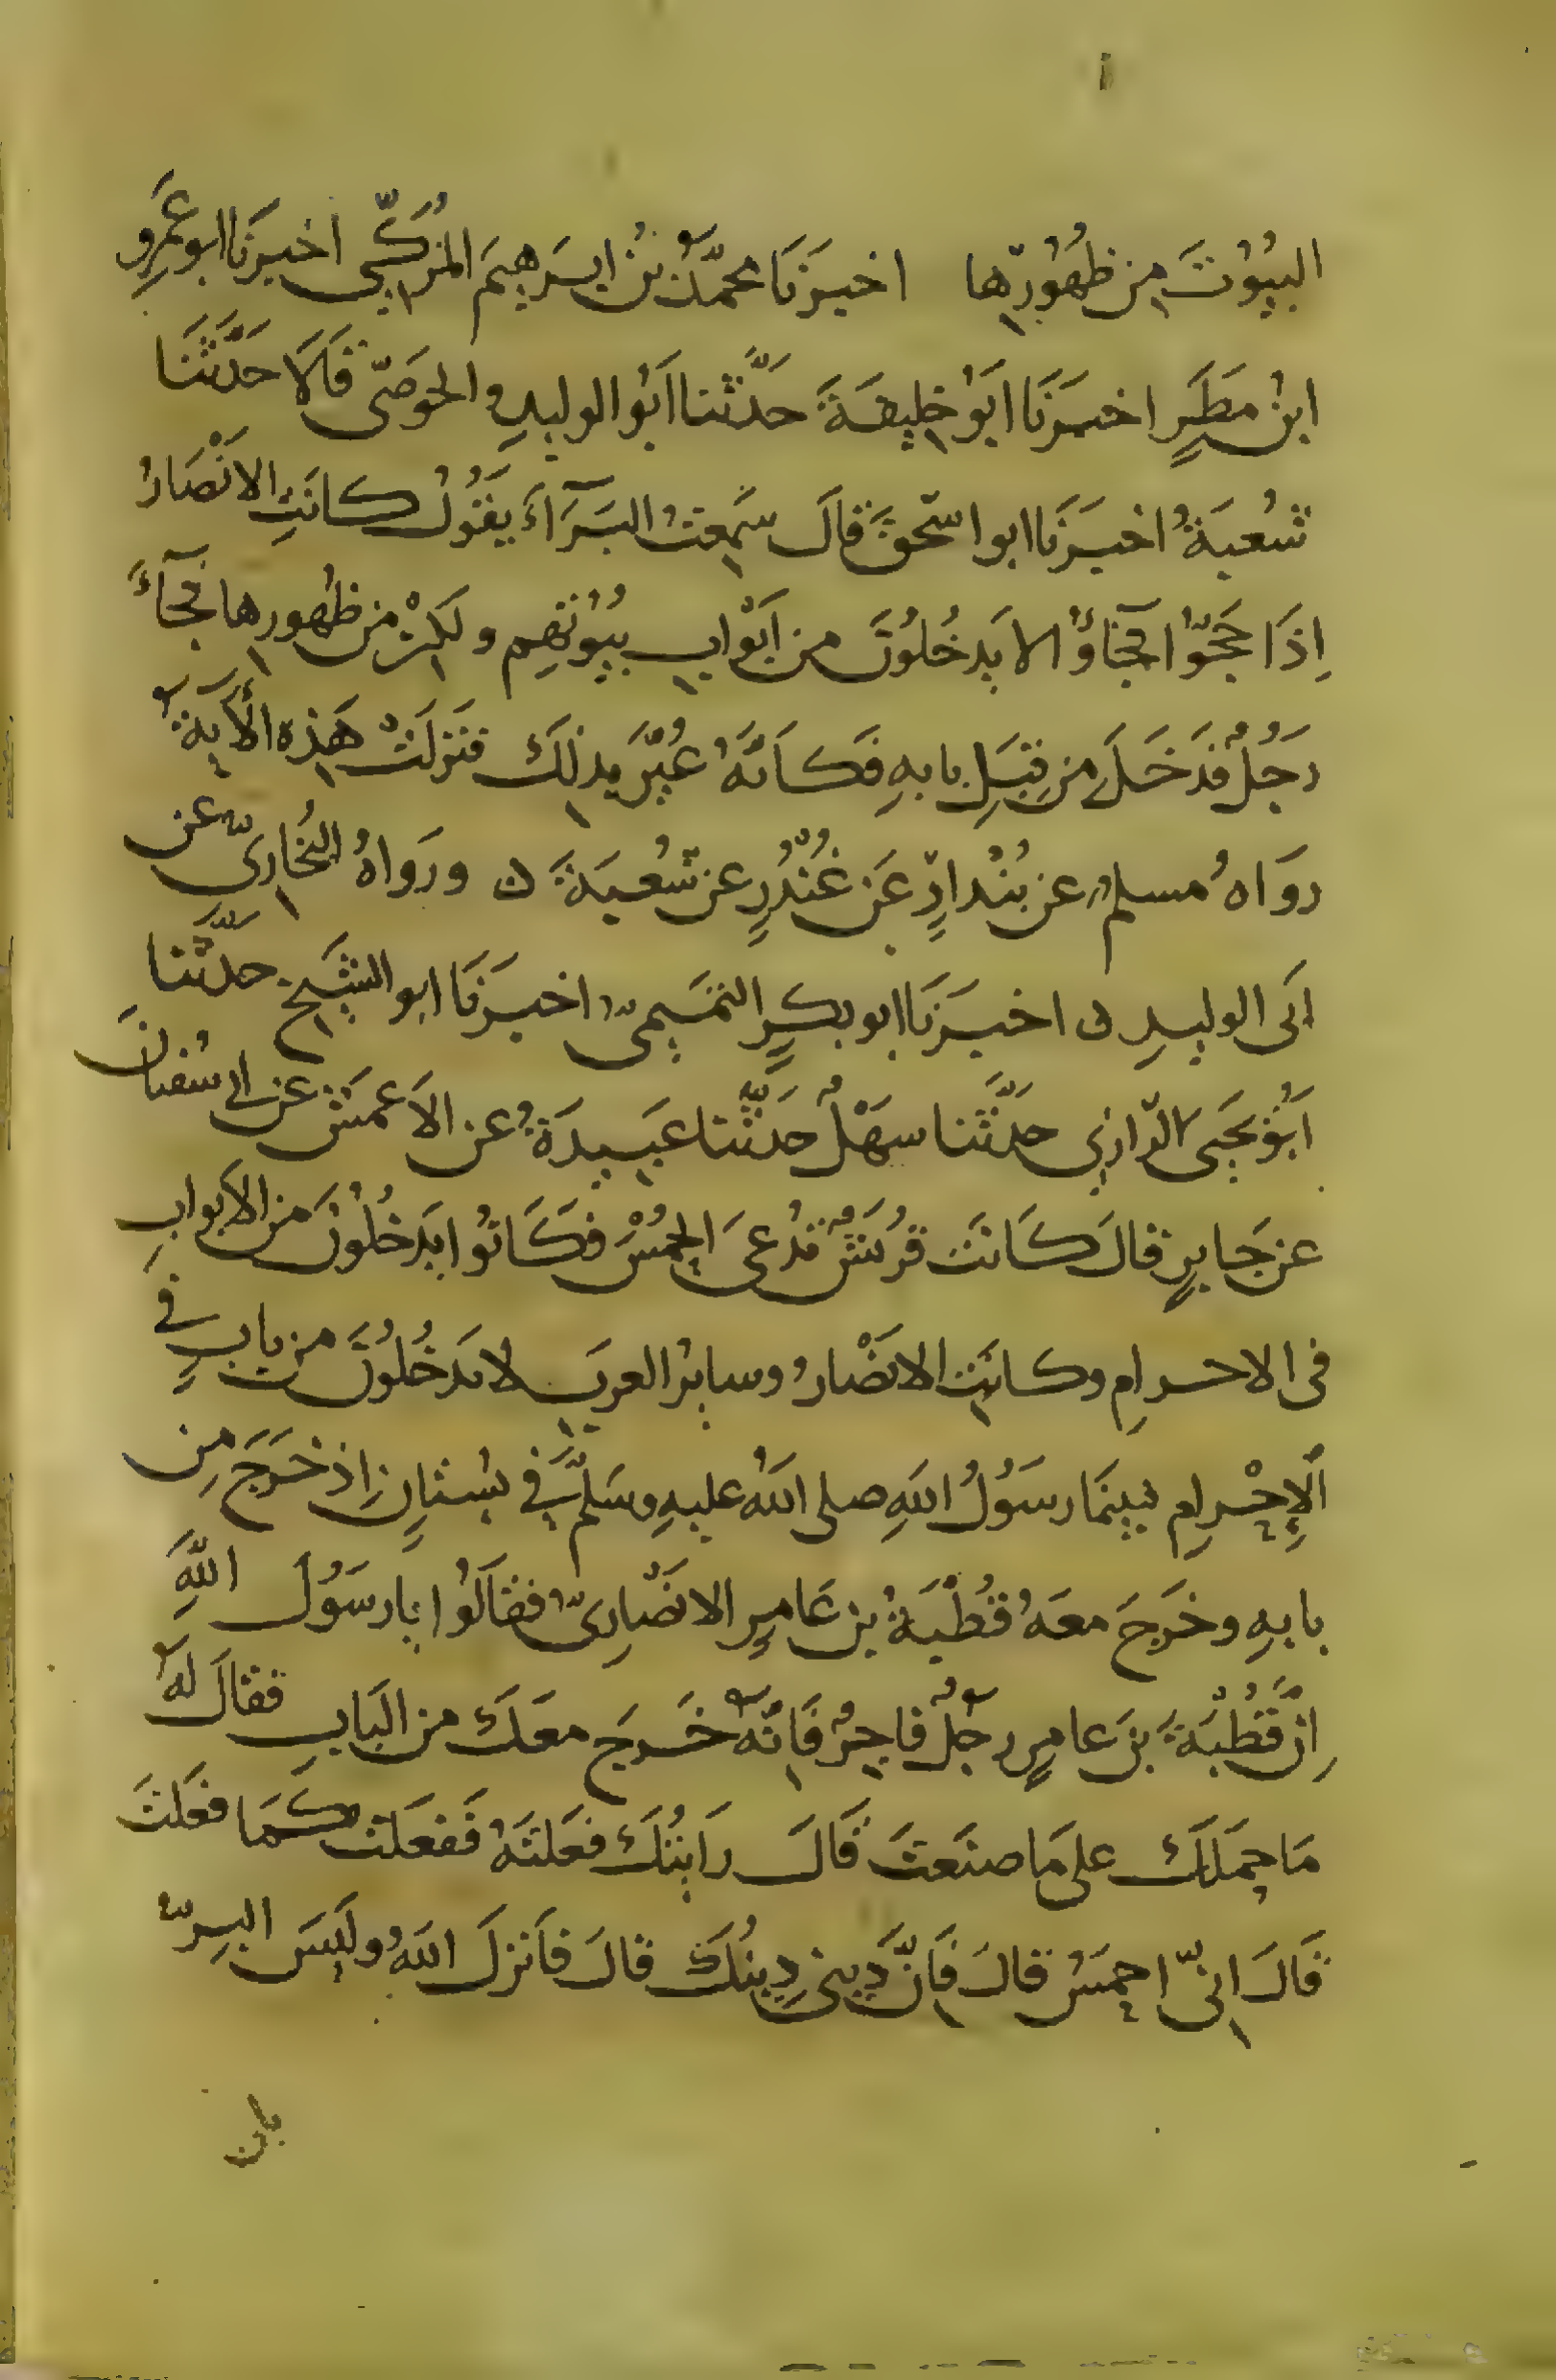 البُيُوْتَ مِن ظُهُوْرِها اخبرَنَا محمّدُ بْنُ ابرَهِيمَ المُزَكِّي اخبرَنَا ابو عَمرِو
ابنُ مطَرٍ اخبرَنَا ابَوُ خلِيفةَ حدَّثَنا ابَوُ الوليدِ والحوَضىّ قَالَا حدَّثَنَا
شُعبَةُ اخبَرَنَا ابو اسحٰقَ قالَ سَمِعتُ البَرَآءَ يَقُولُ كانَتِ الانْصَارُ
اِذَا حَجّوُا فجَاؤُا لا يَدخُلُوْنَ من اَبْوابِ بُيُوْتهِم ولكِنْ من ظُهورِها فجآءَ
رَجُلٌ فدَخَلَ مِن قِبَلِ بابهِ فكاَنَّهُ عُيِّرَ بِذلِكَ فنَزلَتْ هَذِه الاٰيَةُ
روَاهُ مسلمٌ عن بُنْدارٍ عَن غُنْدُرٍ عن شُعبَةَ ن ورَواهُ البُخارِىّ عن
ابَى الوليدِ ن اخبَرَنَا ابو بكرٍ التمَيمِىّ اخبرَنَا ابو الشَيخِ حدَّثنا
اَبُوْ يَحيَى الرّازِي حدَّثَنا سَهْلٌ حَدّثَنا عَبِيدَةُ عن الاَعمَش عن ابى سُفيانَ
عن جَابِرٍ قالَ كَانَتَ قرُيَشٌ تُدْعىَ الحُمْسَ فكَانُوا يَدخُلُوْنَ مَن الابوابِ
فى الاحرامِ وكانَتِ الانَصْارُ وسايرُ العربِ لا يَدخُلُوْنَ من بابٍ فى
اَلاِحْرامِ فبَينَمَا رسَوُلُ اللهِ صلى اللهُ عليهِ وسَلّمَ فى بُستانٍ اِذ خرَجَ مِن
بابهِ وخرَجَ معَهُ قُطْبَةُ بن عَامِرٍ الانَصَارِىّ فقَالَوُا يا رسَوُلَ اللهِ
اِنَّ قُطْبَةَ بنَ عامرٍ رجُلٌ فاجِرٌ فَاِنّهُ خَرجَ معَكَ من البَابِ فقالَ لهُ
مَا حمَلَكَ على مَا صنَعتَ قَالَ رَايَتُكَ فعَلتَهُ ففَعَلتُ كمَا فعَلتَ
قَالَ انِّى احمَسُ قالَ فَاِنَّ دِينِى دِينُكَ قالَ فاَنزلَ اللهُ وليَسَ البِرّ
بان